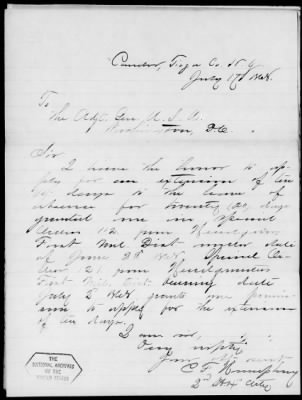 Candor, Tioga Co N.Y.
July 17th
To
The Adjt. Gen. U.S.A.
Washington, D.C.
Sir
I have the honor to ap-
ply for an extension of ten
days to the leave of
absence for twenty (20) days
granted me in Special
Orders 112 from Headquarters
First Mil. Dist. under date
of June 28th Special Or-
der 121 from Headquarters
First Mil. Dist. bearing date
July 2 grants me permis-
sion to apply for the extension
of ten days.
I am sir,
Very respectfully
Your obt. servt.
C. F. Humphrey
2nd Lieut Arty
THE NATIONAL ARCHIVES
OF THE
UNITED STATES